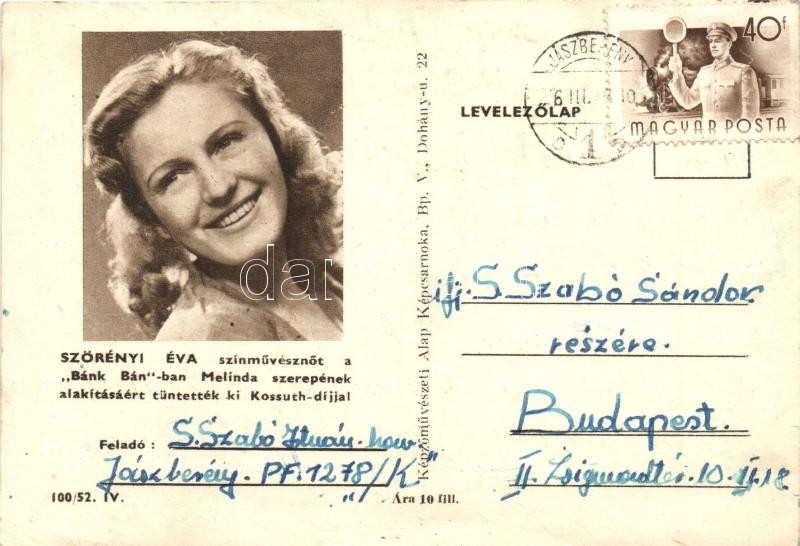 SZÖRÉNYI ÉVA színművésznőt a
„Bánk Bán“-ban Melinda szerepének
alakításáért tüntették ki Kossuth-díjjal
Feladó : S. Szabó István. how.
Jászberény. PF. 1278/K"
100/52. IV.
Ára 10 fill.
Képzőművészeti Alap Képcsarnoka, Bp. V., Dohány-u. 22
LEVELEZŐLAP
JÁSZBERÉNY
III.
1
40f
MAGYAR POSTA
ifj. S. Szabó Sándor
részére.
Budapest.
II. Zsigmondtér. 10. II. 18
dar